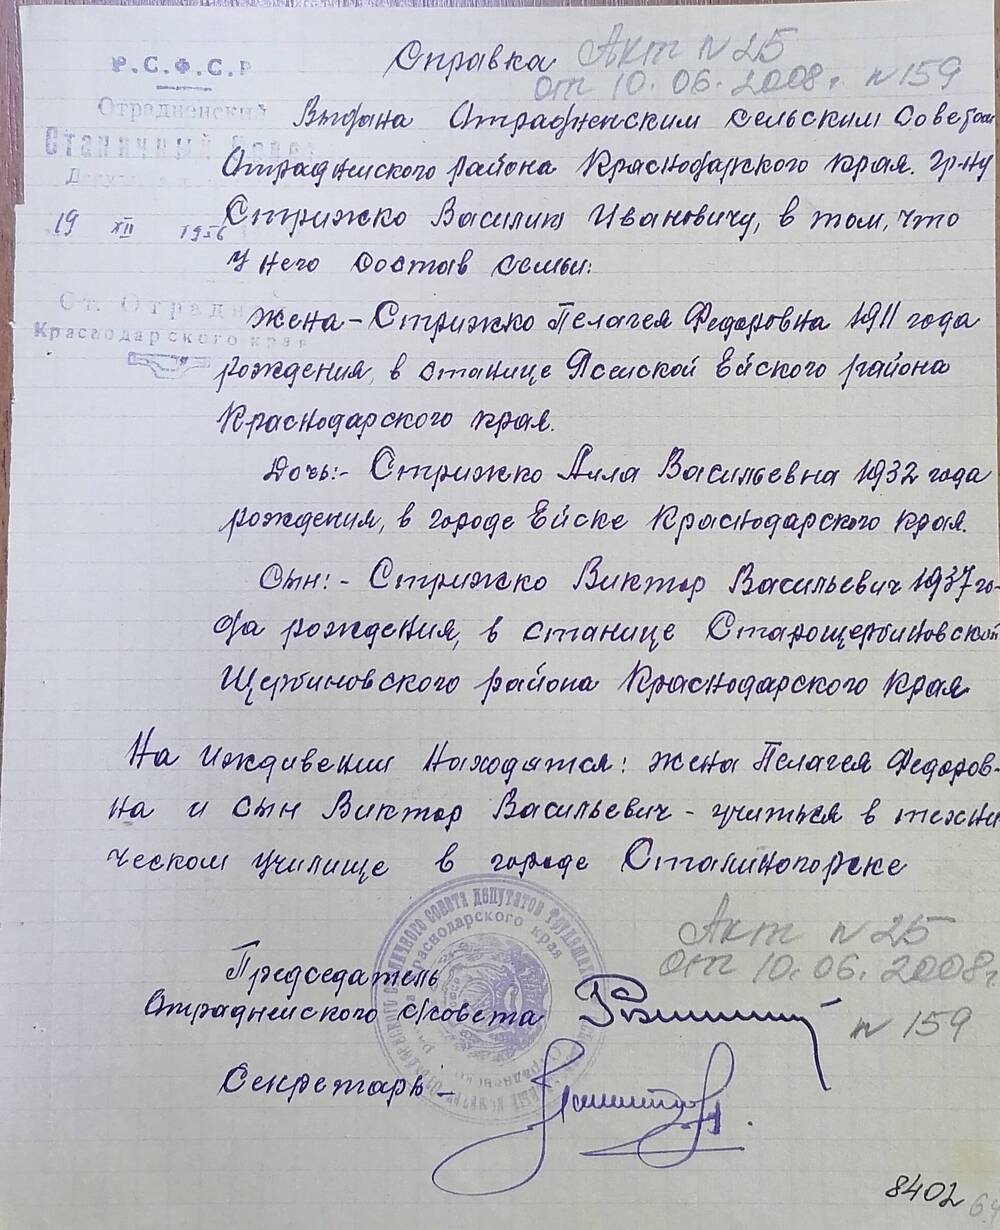 Справка Акт N 25
от 10.06.2008г. N 159
Р.С.Ф.С.Р
Отрадненский
Станичный Совет
19 XII 1956
Ст. Отрадная
Краснодарского края
Выдана Отрадненским сельским Советом
Отраднеского района Краснодарского края. гр-ну
Стрижко Василию Ивановичу, в том, что
у него состав семьи:
Жена – Стрижко Пелагея Федоровна 1911 года
рождения, в станице Ясенской Ейского района
Краснодарского края.
Дочь:- Стрижко Алла Васильевна 1932 года
рождения, в городе Ейске Краснодарского края.
Сын:- Стрижко Виктор Васильевич 1937 го-
да рождения, в станице Старощербиновской
Щербиновского района Краснодарского края
На иждивении находятся: жена Пелагея Федоров-
на и сын Виктор Васильевич - учиться в техни
ческом училище в городе Сталиногорске
Акт N 25
от 10.06.2008г.
N 159
Председатель
Отраднеского с/совета
Секретарь -
Краснодарского края
8402